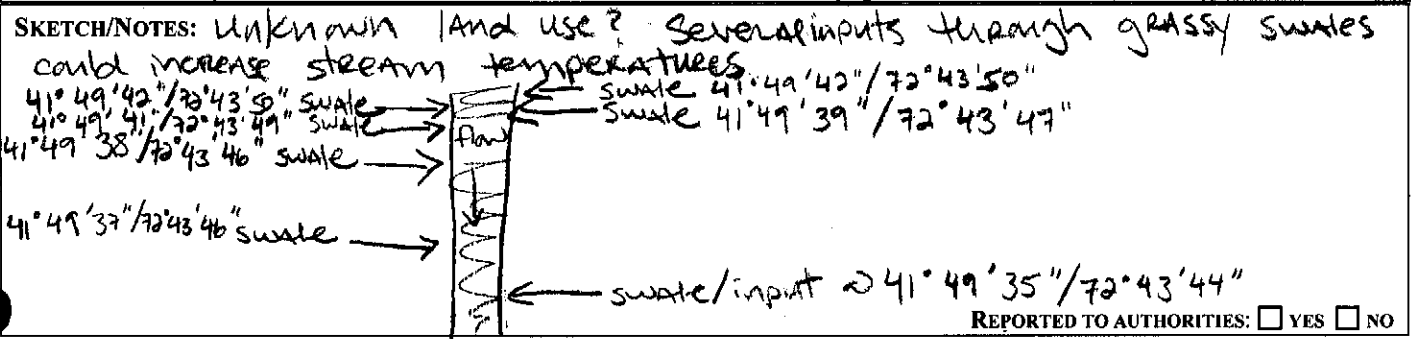 SKETCH/NOTES: Unknown land use? Several inputs through grassy swales
could increase stream temperatures.
41° 49' 42"/72° 43' 50" swale
swale 41° 49' 42"/72° 43' 50"
41° 49' 41"/72° 43' 49" swale
swale 41° 49' 39"/72° 43' 47"
flow
41° 49' 38"/72° 43' 46" swale
41° 49' 37"/72° 43' 46" swale
swale/input @ 41° 49' 35"/72° 43' 44"
REPORTED TO AUTHORITIES: ☐ YES ☐ NO